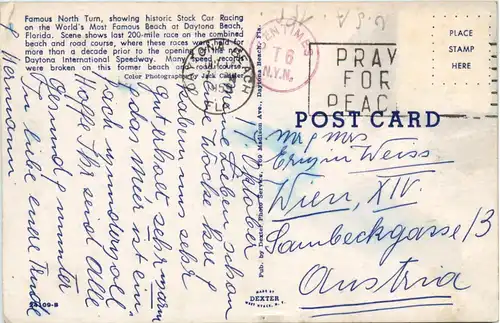 Famous North Turn, showing historic Stock Car Racing
on the World's Most Famous Beach at Daytona Beach,
Florida. Scene shows last 200-mile race on the combined
beach and road course, where these races were held for
more than a decade prior to the opening of the new
Daytona International Speedway. Many speed records
were broken on this former beach and road course.
Color Photograph by Jack
17. Oktober
meine Lieben schon
eine Woche hier
haben uns sehr
gut erholt sehr warm
das Meer ist ein
fach wundervoll
Hoffe Ihr seid Alle
Gesund, munter
In Liebe eure Trude
Hermann
24109-B
Pub. by Dexter Photo Service, Madison Ave., Daytona Beach, Fla.
MADE BY
DEXTER
WEST NYACK, N. Y.
USA
T6
N.Y.N.
BEACH
FLA
PRAY
FOR
PEACE
PLACE
STAMP
HERE
POST CARD
Mr & Mrs
Erwin Weiss
Wien, XIV
Sambeckgasse/3
Austria